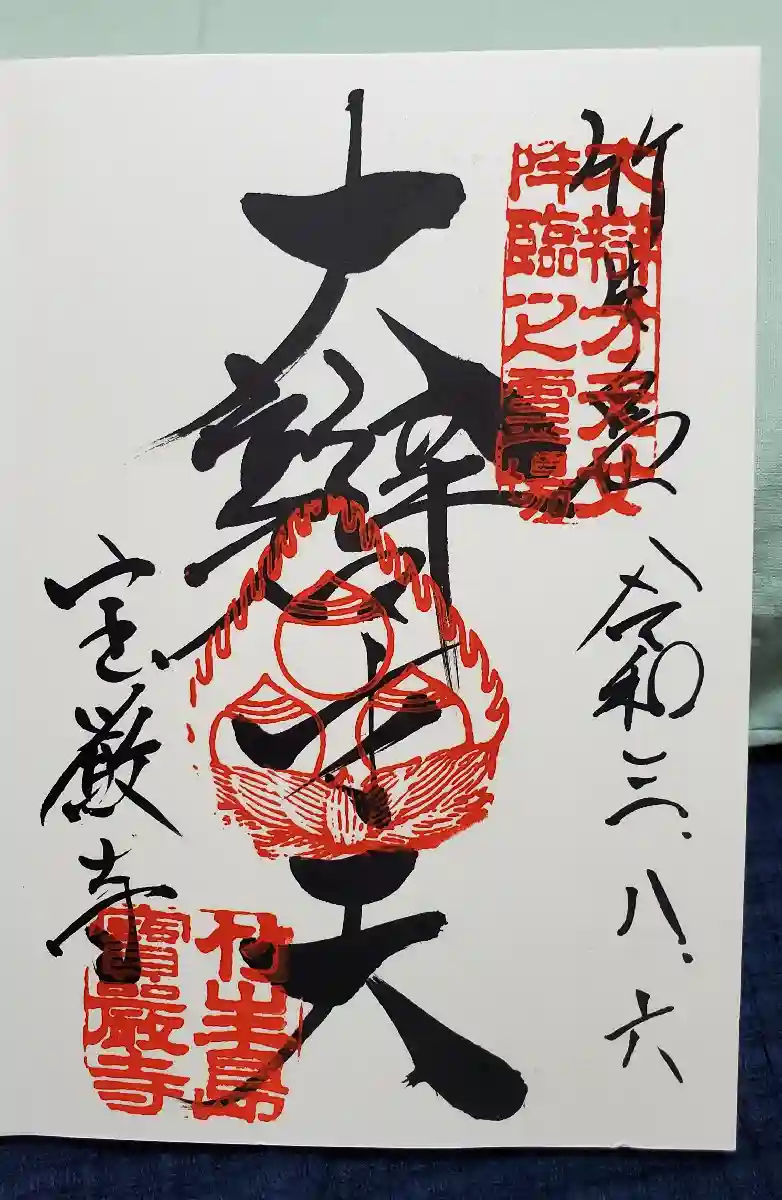 竹生島
令和三.八.六
大辯才天女
降臨之霊場
大辯才天
宝厳寺
竹生島
寶嚴寺